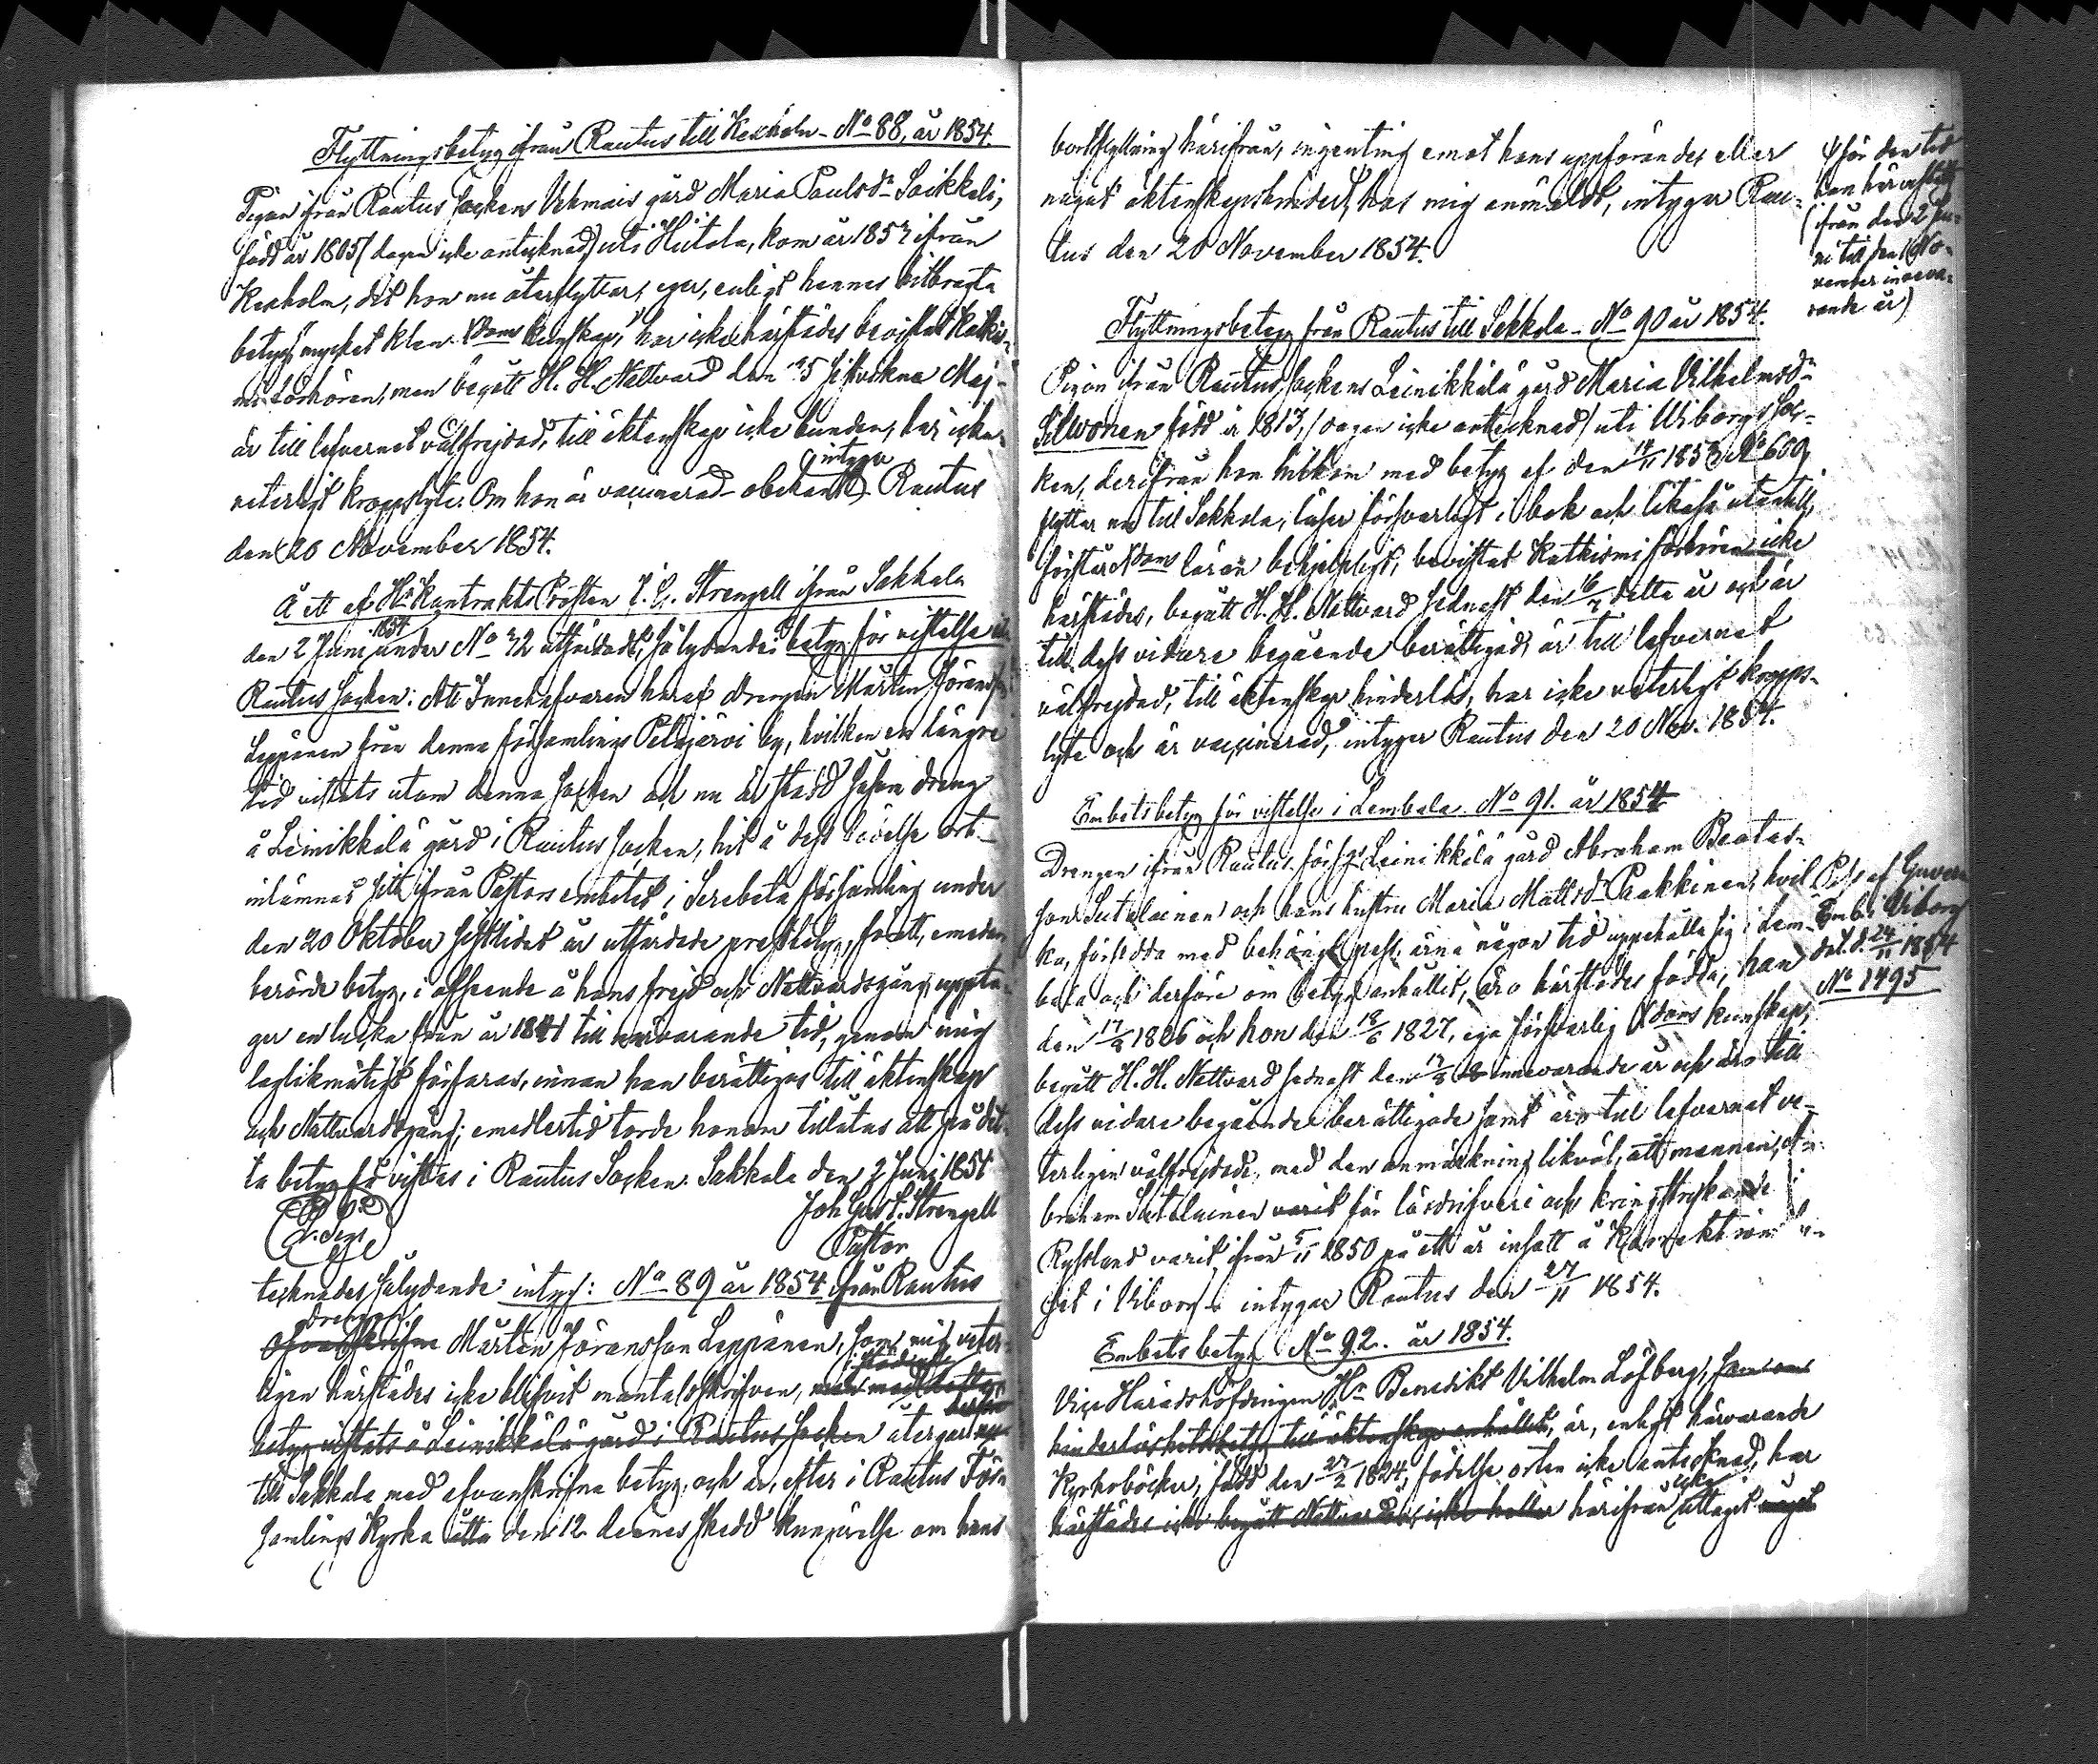 Flyttningsbetyg ifrån Rautus till Kexholm - No 88, år 1854.
Pigan ifrån Rautus Sockens Vehmais gård Maria Paulsdr Loikkeli,
född år 1805 (dagen icke antecknad) uti Hiitola, kom år 1852 ifrån
Kexholm, dit hon nu återflyttar, eger, enligt hennes hitbragta
betyg, mycket klen Xdoms kunskap, har icke härstädes bevistat Katkis-
mi förhören, men begått H. H. Nattvard den 5 sistvekne Maj,
är till lefvernet välfrejdad, till äktenskap icke bunden, har icke
veterligt kroppslyte. Om hon är vaccinerad obekant, intygar Rautus
den 20 November 1854.
Å ett af Hr Kontrakts Prosten J. G. Strengell ifrån Sakkola
den 2 Juni 1854 under No 72 utfärdadt, sålydande betyg för vistelse i
Rautus Socken: Att Innehafvaren häraf Drengen Mårten Jöransson
Leppänen från denna församlings Petäjärvi by, hvilken en längre
tid vistats utom denna socken och nu är stadd såsom dreng
å Leinikkälä gård i Rautus socken, hit å dess
inlämnad sitt ifrån Pastorsembetet i Serebeta församling under
den 20 Oktober sistlidet år utfärdade prestbetyg, så att, emedan
berörde betyg, i afseende å hans frejd och Nattvardsgång, uppta-
ger en lucka från år 1841 till närvarande tid, genom mig
laglikmätigt förfaras, innan han berättigas till äktenskap
och Nattvardsgång; emedlertid torde honom tillåtas att på det-
ta betyg få vistas i Rautus Socken. Sakkola den 2 Juni 1854
Joh. Gust. Strengell
Pastor
tecknades sålydande intyg: No 89 år 1854 ifrån Rautus
Drengen
Ofvanskrifne Mårten Jöransson Leppänen, som mig veter-
ligen härstädes icke blifvit mantalsskrifven,
betyg vistats å Leinikkälä gård i Rautus socken återgår nu
till Sakkola med ofvanskrifna betyg, och är, efter i Rautus För-
samlings Kyrka åtta den 12 dennes skedd kungörelse om hans
bortflyttning härifrån, ingenting emot hans uppförandes eller
något äktenskapshinder, hos mig anmäldt, intygar Rau-
tus den 20 November 1854.
för den tid
han här vistats
(ifrån den 2 Ju-
ni till den No-
vember inneva-
rande år)
Flyttningsbetyg från Rautus till Sakkola - No 90 år 1854.
Pigan ifrån Rautus Sockens Leinikkälä gård Maria Vilhelmsdr
Silvonen född år 1813, (dagen icke antecknad) uti Wiborgs Soc-
ken, derifrån hon hitkom med betyg af den 14/11 1853 No 609,
flyttar nu till Sakkola, läser försvarligt i bok och likaså utantill,
förstår Xdoms läran behjelpligt, bevistat Katkismi förhören icke
härstädes, begått H. H. Nattvard sednast den 16/7 detta år och är
till dess vidare begående berättigad, är till lefvernet
välfrejdad, till äktenskap hinderlös, har icke veterligt kropps-
lyte och är vaccinerad, intygar Rautus den 20 Nov. 1854.
Embetsbetyg för vistelse i Lembala. No 91. år 1854
Drengen ifrån Rautus förs:gs Leinikkälä gård Abraham Beatas-
son Sutelainen och hans hustru Maria Mattsdr Paakkinen, hvil-
ka, försedda med behörigt pass, ärna någon tid uppehålla sig i Lem-
bala och derföre om betyg anhållit, äro härstädes födda, han
den 17/8 1826 och hon den 18/6 1827, ega försvarlig Xdoms kunskap,
begått H. H. Nattvard sednast den innevarande år och äro till
dess vidare begående berättigade samt äro till lefvernet ve-
terligen välfrejdade, med den anmärkning likväl, att mannen, A-
braham Sutelainen varit för lösdrifveri och kringstrykande i
Ryssland varit, ifrån 5/11 1850 på ett år insatt å Korrektions In-
gst i Viborg - intygar Rautus den 27/11 1854.
Pass af Guvern.
Embt Viborg
dat. d. 24/11 1854
No 1495
Embetsbetyg No 92. år 1854.
Vice Häradshöfdingen Hr Benedikt Vilhelm Löfberg, som om
hinderlöshetsbetyg till äktenskap anhållit, är, enligt härvarande
Kyrkoböcker, född den 27/2 1824, födelse orten icke antecknad, har
härstädes icke begått Nattvarden, icke heller härifrån icke uttagit något